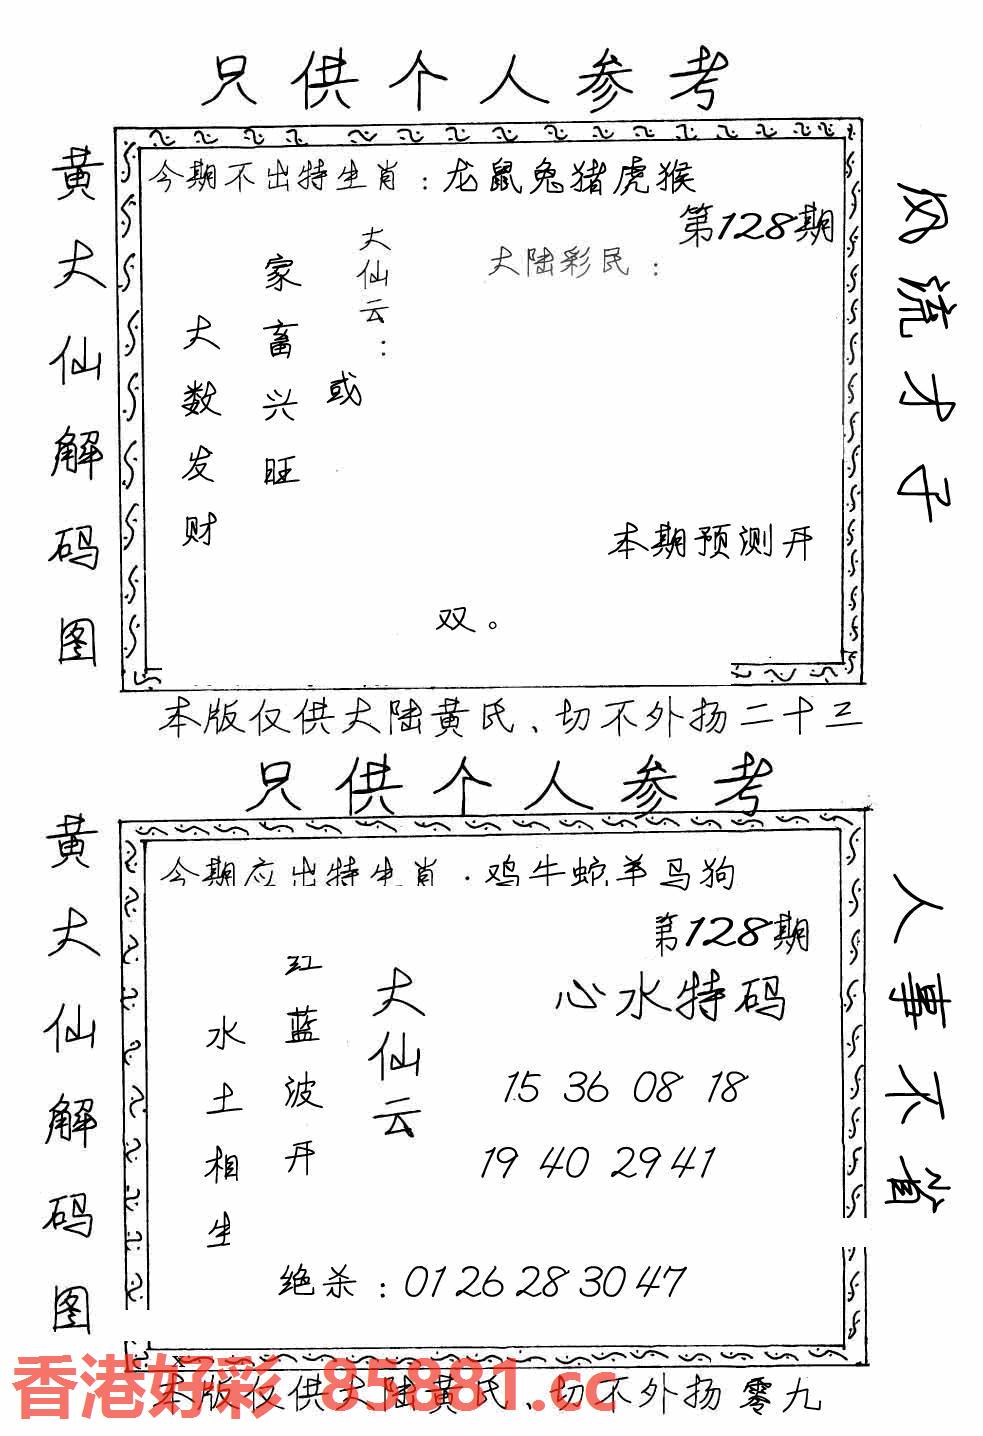 只供个人参考
黄大仙解码图
今期不出特生肖：龙鼠兔猪虎猴
第128期
大陆彩民：
大仙云：
或
家畜兴旺
大数发财
本期预测开
双。
风流才子
本版仅供大陆黄氏、切不外扬二十三
只供个人参考
黄大仙解码图
今期应出特生肖：鸡牛蛇羊马狗
第128期
心水特码
大仙云
红蓝波开
水土相生
15 36 08 18
19 40 29 41
绝杀：01 26 28 30 47
人事不省
本版仅供大陆黄氏、切不外扬零九
香港好彩 85881.cc